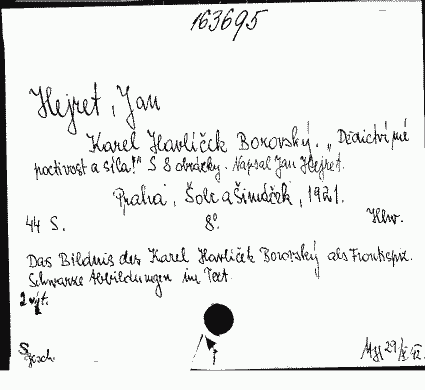 163695
Hejret, Jan
Karel Havlíček Borovský. „Dědictví mé
poctivost a síla!" S 8 obrázky. Napsal Jan Hejret.
Praha, Šolc a Šimáček, 1921.
44 S. 8°. Hlw.
Das Bildnis des Karel Havlíček Borovský als Frontispz.
Schwarze Abbildungen im Text.
2 výt.
Gesch. 29/